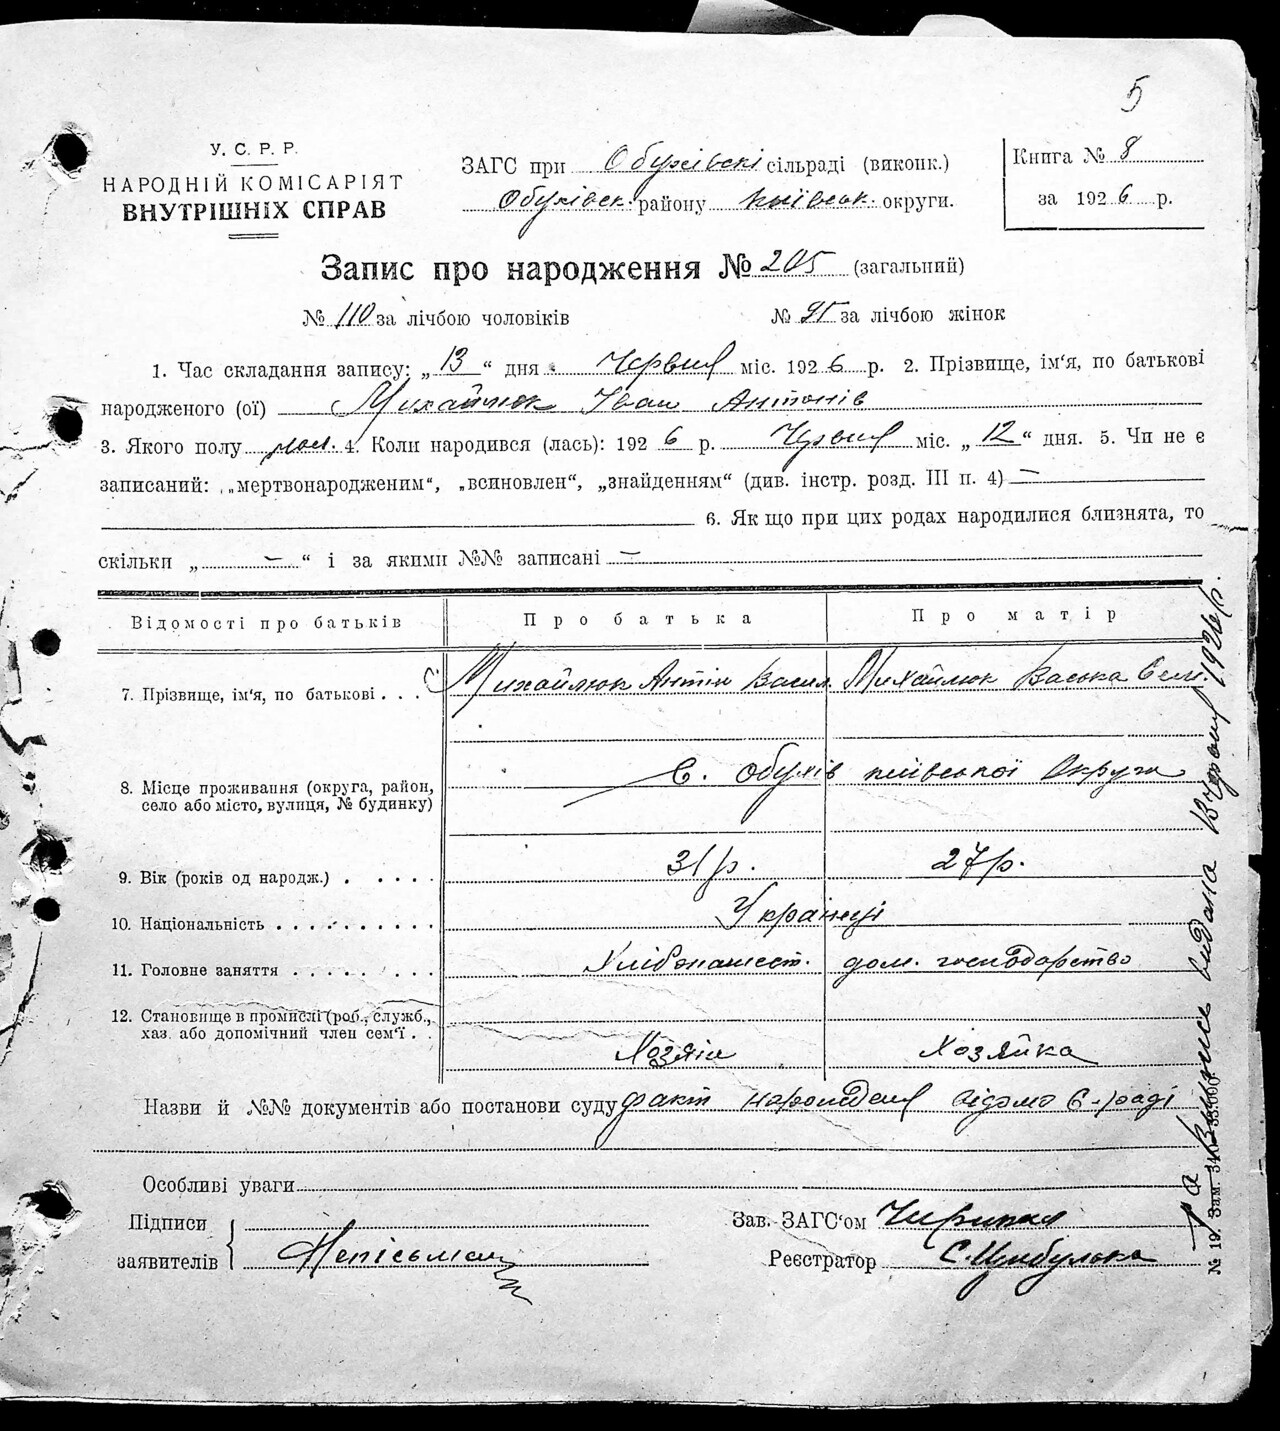 5
У. С. Р. Р.
НАРОДНІЙ КОМІСАРІЯТ
ВНУТРІШНІХ СПРАВ
ЗАГС при Обухівскі сільраді (виконк.)
Обухівск. району Київськ. округи.
Книга № 8
за 1926 р.
Запис про народження № 205 (загальний)
№ 110 за лічбою чоловіків № 95 за лічбою жінок
1. Час складання запису: „13“ дня Червня міс. 1926 р. 2. Прізвище, ім‘я, по батькові
народженого (ої) Михайлюк Іван Антонів
3. Якого полу чол. 4. Коли народився (лась): 1926 р. Червня міс. „12“ дня. 5. Чи не є
записаний: „мертвонародженим“, „всиновлен“, „знайденням“ (див. інстр. розд. III п. 4) —
6. Як що при цих родах народилися близнята, то
скільки „ — “ і за якими №№ записані —
Відомості про батьків Про батька Про матір
7. Прізвище, ім‘я, по батькові . . . Михайлюк Антін Васил. Михайлюк Васька
8. Місце проживання (округа, район,
село або місто, вулиця, № будинку)
с. Обухів київської Округи
9. Вік (років од народж.) . . . . . 31 р. 27 р.
10. Національність . . . . . . . . . . Українці
11. Головне заняття . . . . . . . . Хлібопашест. дом. господарство
12. Становище в промислі (роб., служб.,
хаз. або допомічний член сем‘ї . .
Хозяін Хозяйка
Назви й №№ документів або постанови суду факт народження відомо С-раді
Особливі уваги
Підписи
заявителів
Неписьмен
Зав. ЗАГС‘ом
Реєстратор С. Цибулька
Виписъ видана 13 червня 1926 р.
№ 19. Зам.